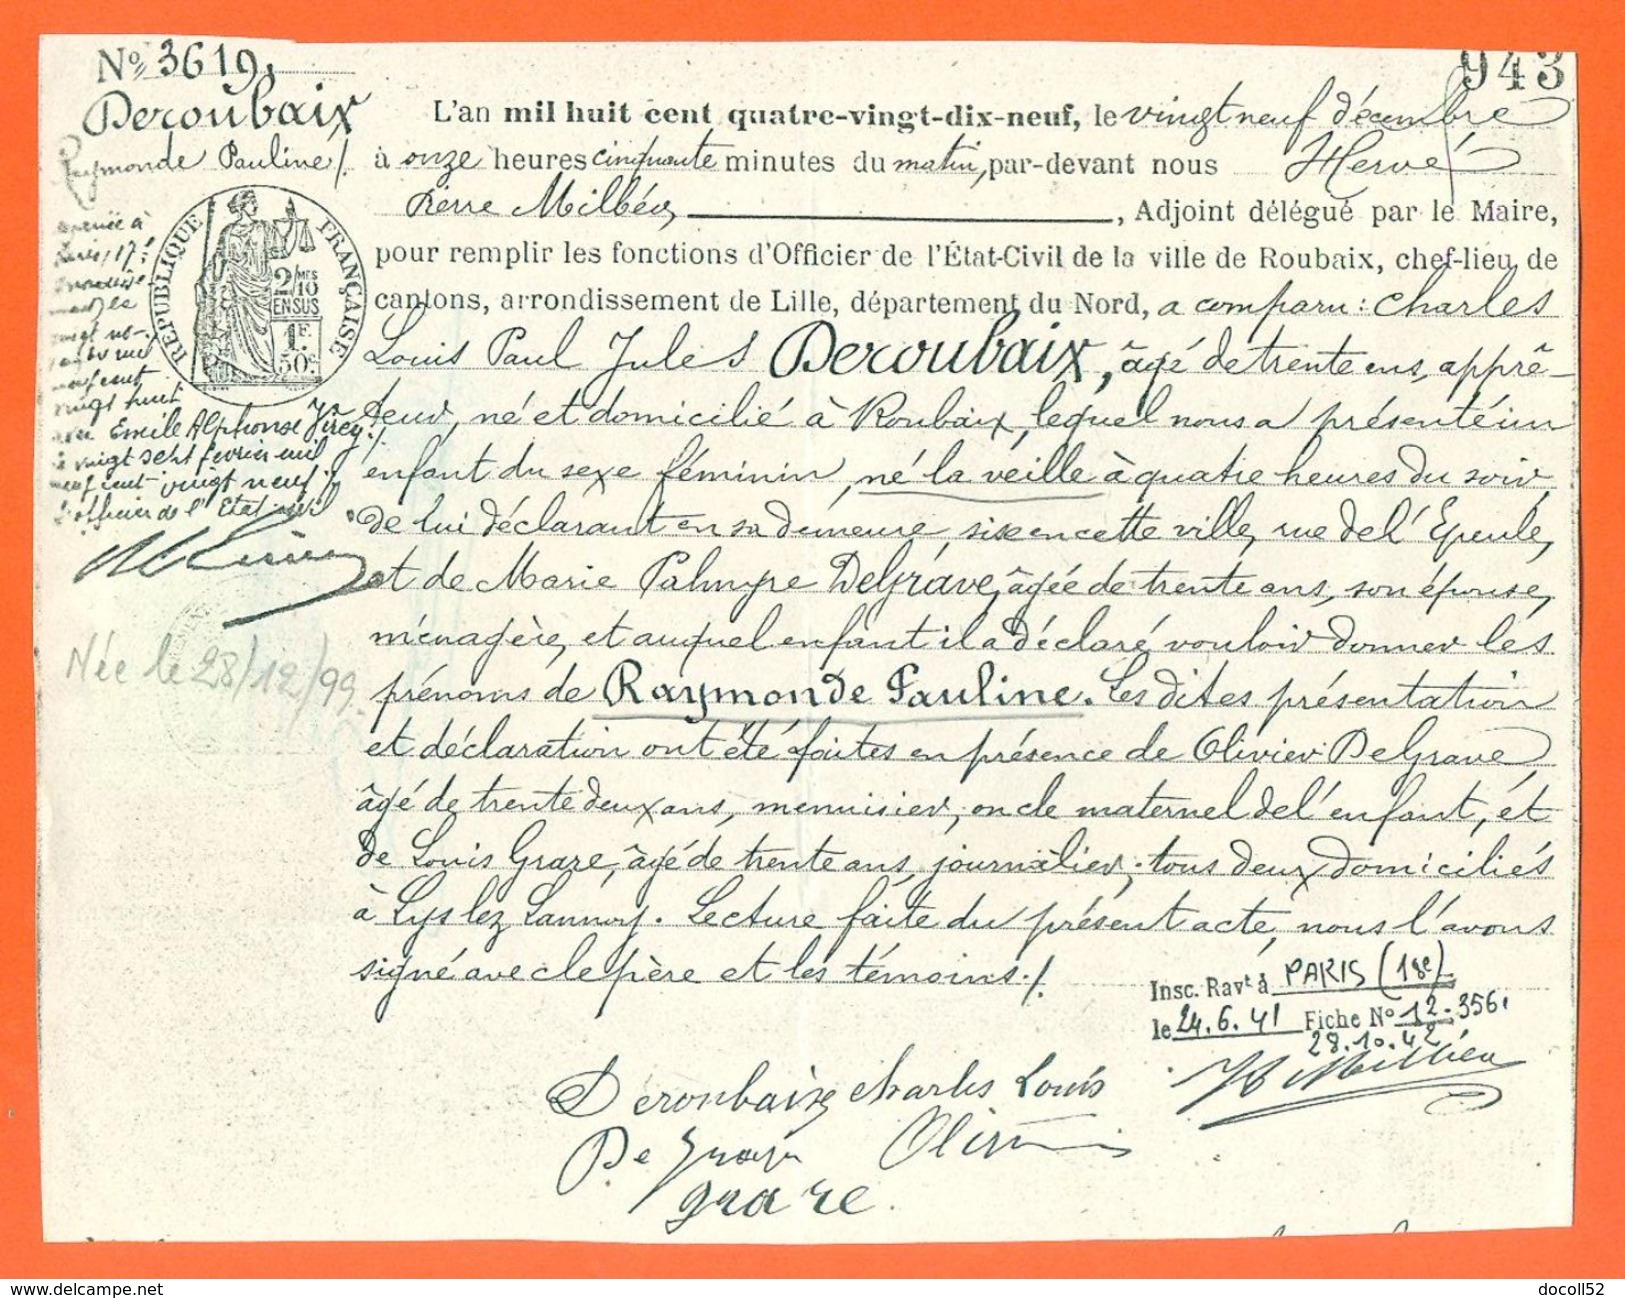 No 3619
943
Deroubaix
Raymonde Pauline
L'an mil huit cent quatre-vingt-dix-neuf, le vingt neuf décembre
à onze heures cinquante minutes du matin, par-devant nous Hervé
Pierre, Adjoint délégué par le Maire,
pour remplir les fonctions d'Officier de l'État-Civil de la ville de Roubaix, chef-lieu de
cantons, arrondissement de Lille, département du Nord, a comparu : Charles
Louis Paul Jules Deroubaix, âgé de trente ans, apprê-
teur, né et domicilié à Roubaix, lequel nous a présenté un
enfant du sexe féminin, né la veille à quatre heures du soir,
de lui déclarant en sa demeure sise en cette ville, rue de l'Epeule,
et de Marie Palmyre Delgrave, âgée de trente ans, son épouse,
ménagère, et auquel enfant il a déclaré vouloir donner les
prénoms de Raymonde Pauline. Les dites présentation
et déclaration ont été faites en présence de Olivier Delgrave
âgé de trente deux ans, menuisier, oncle maternel de l'enfant, et
de Louis Grare, âgé de trente ans, journalier, tous deux domiciliés
à Lys lez Lannoy. Lecture faite du présent acte, nous l'avons
signé avec le père et les témoins ./.
RÉPUBLIQUE FRANÇAISE
2/10 MES
EN SUS
1F.
50c.
mariée à
Paris, 17e
arrondisse
ment, le
vingt no-
vembre mil
neuf cent
vingt huit
avec Emile Alphonse Virey./.
Le vingt sept fevrier mil
neuf cent vingt neuf ./.
L'officier de l'Etat civil
Née le 28/12/99
Insc. Ravt à PARIS (18e)
le 24.6.41 Fiche No 12.356
28.10.42
Deroubaix Charles Louis
Olivier
Grare
delcampe.net
docoll52